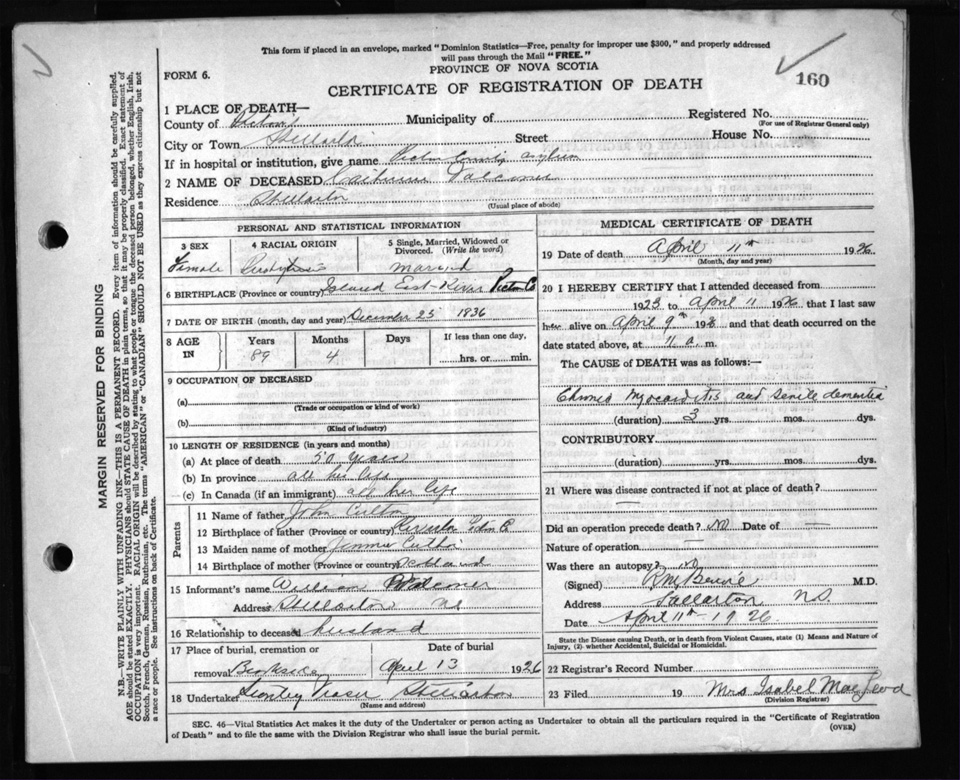 This form if placed in an envelope, marked "Dominion Statistics—Free, penalty for improper use $300," and properly addressed
will pass through the Mail "FREE."
PROVINCE OF NOVA SCOTIA
FORM 6.
160
CERTIFICATE OF REGISTRATION OF DEATH
1 PLACE OF DEATH—
County of Pictou Municipality of Registered No.
(For use of Registrar General only)
City or Town Stellarton Street House No.
If in hospital or institution, give name Pictou County Asylum
2 NAME OF DECEASED Catherine Falconer
Residence Stellarton
(Usual place of abode)
PERSONAL AND STATISTICAL INFORMATION
3 SEX 4 RACIAL ORIGIN 5 Single, Married, Widowed or Divorced. (Write the word)
Female married
6 BIRTHPLACE (Province or country) Island East River Pictou Co
7 DATE OF BIRTH (month, day and year) December 25 1836
8 AGE IN Years Months Days If less than one day,
89 4 hrs. or min.
9 OCCUPATION OF DECEASED
(a)
(Trade or occupation or kind of work)
(b)
(Kind of industry)
10 LENGTH OF RESIDENCE (in years and months)
(a) At place of death 50 years
(b) In province all his life
(c) In Canada (if an immigrant) all her life
Parents
11 Name of father John
12 Birthplace of father (Province or country)
13 Maiden name of mother
14 Birthplace of mother (Province or country) Scotland
15 Informant's name William
Address Stellarton NS
16 Relationship to deceased husband
17 Place of burial, cremation or removal Date of burial
April 13 1926
18 Undertaker Stanley Fraser Stellarton
(Name and address)
MEDICAL CERTIFICATE OF DEATH
19 Date of death April 11th 1926
(Month, day and year)
20 I HEREBY CERTIFY that I attended deceased from
1923 to April 11 1926 that I last saw
her alive on April 9th 1926 and that death occurred on
date stated above, at 11 a. m.
The CAUSE of DEATH was as follows:—
Chronic Myocarditis and senile dementia
(duration) 3 yrs. mos. dys.
CONTRIBUTORY
(duration) yrs. mos. dys.
21 Where was disease contracted if not at place of death?
—
Did an operation precede death? No Date of —
Nature of operation —
Was there an autopsy? no
(Signed) M.D.
Address Stellarton N.S.
Date April 11th 1926
State the Disease causing Death, or in death from Violent Causes, state (1) Means and Nature of
Injury, (2) whether Accidental, Suicidal or Homicidal.
22 Registrar's Record Number
23 Filed 19 Mrs Isabel MacLeod
(Division Registrar)
SEC. 46—Vital Statistics Act makes it the duty of the Undertaker or person acting as Undertaker to obtain all the particulars required in the "Certificate of Registration
of Death" and to file the same with the Division Registrar who shall issue the burial permit.
(OVER)
MARGIN RESERVED FOR BINDING
N.B.—WRITE PLAINLY WITH UNFADING INK—THIS IS A PERMANENT RECORD. Every item of information should be carefully supplied.
AGE should be stated EXACTLY. PHYSICIANS should STATE CAUSE OF DEATH in plain terms, so that it may be properly classified. Exact statement of
OCCUPATION is very important. RACIAL ORIGIN will be described by stating to what people or tongue the deceased person belonged, whether English, Irish,
Scotch, French, German, Russian, Ruthenian, etc. The terms "AMERICAN" or "CANADIAN" SHOULD NOT BE USED as they express citizenship but not
a race or people. See instructions on back of Certificate.